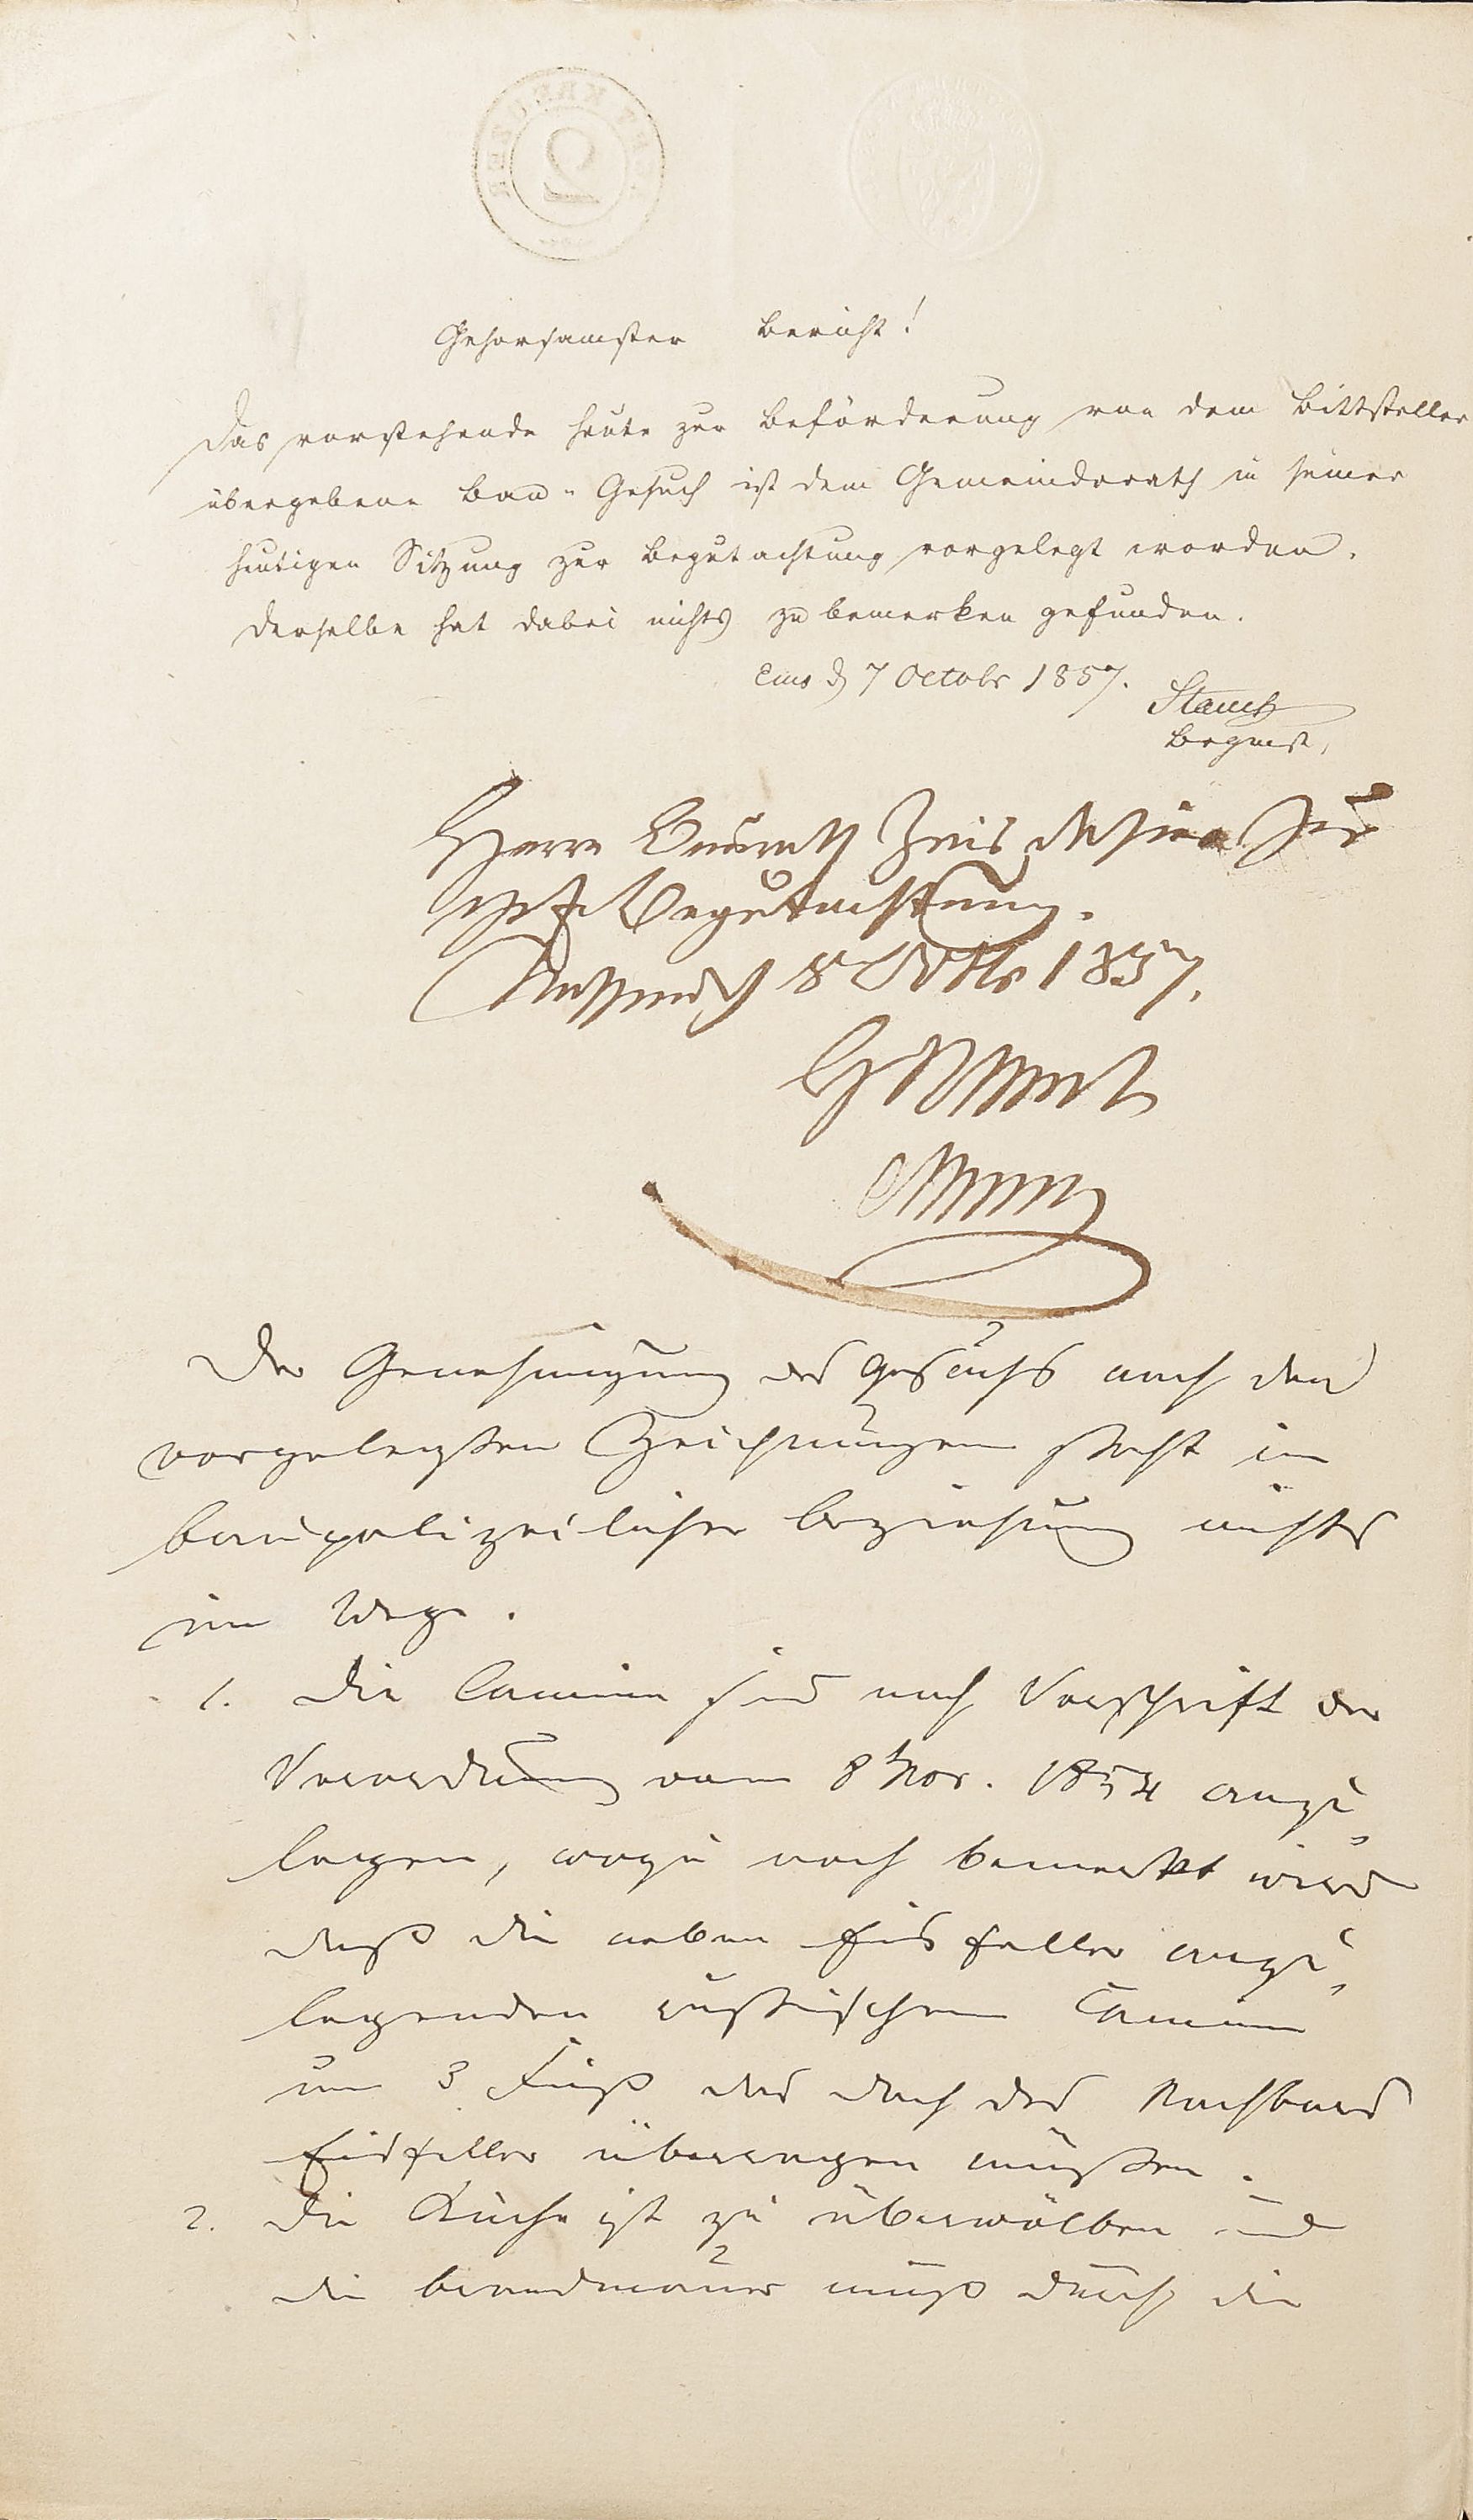 2
Gehorsamster Bericht!
Das vorstehende heute zur Beförderung von dem Bittsteller
übergebene Bau-Gesuch ist dem Gemeinderath in seiner
heutigen Sitzung zur Begutachtung vorgelegt worden.
Derselbe hat dabei nichts zu bemerken gefunden.
Ems d 7 Octobr 1857.
Brgmst,
Herrn Baurath Zais dahier zur
Begutachtung.
Nassau d 8 Octbr 1857.
Der Genehmigung des Gesuchs nach den
vorgelegten Zeichnungen steht in
baupolizeilicher Beziehung nichts
im Wege.
1. Die Camine sind nach Vorschrift der
Verordnung vom 8 Nov. 1854 anzu
legen, wozu noch bemerkt wird
daß die neben anzu,
legenden russischen Camine
um 3 Fuß das Dach des Nachbars
überragen müßen.
2. Die Küche ist zu überwölben und
die Brandmauer muß durch die